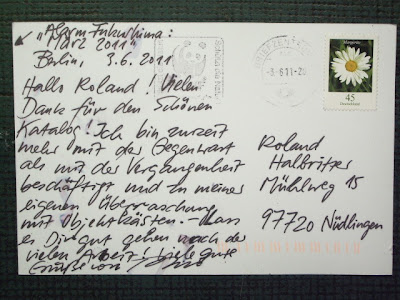 „Alarm Fukushima:
März 2011"
Berlin, 3.6.2011
Hallo Roland! Vielen
Dank für den schönen
Katalog! Ich bin zurzeit
mehr mit der Gegenwart
als mit der Vergangenheit
beschäftigt und zu meiner
eigenen Überraschung
mit Objektkästen. – Lass
es Dir gut gehen nach der
vielen Arbeit! Viele gute
Grüße von
BRIEFZENTRUM
-3.-6.11-20
Margerite
45
Deutschland
Roland
Halbritter
Mühlweg 15
97720 Nüdlingen